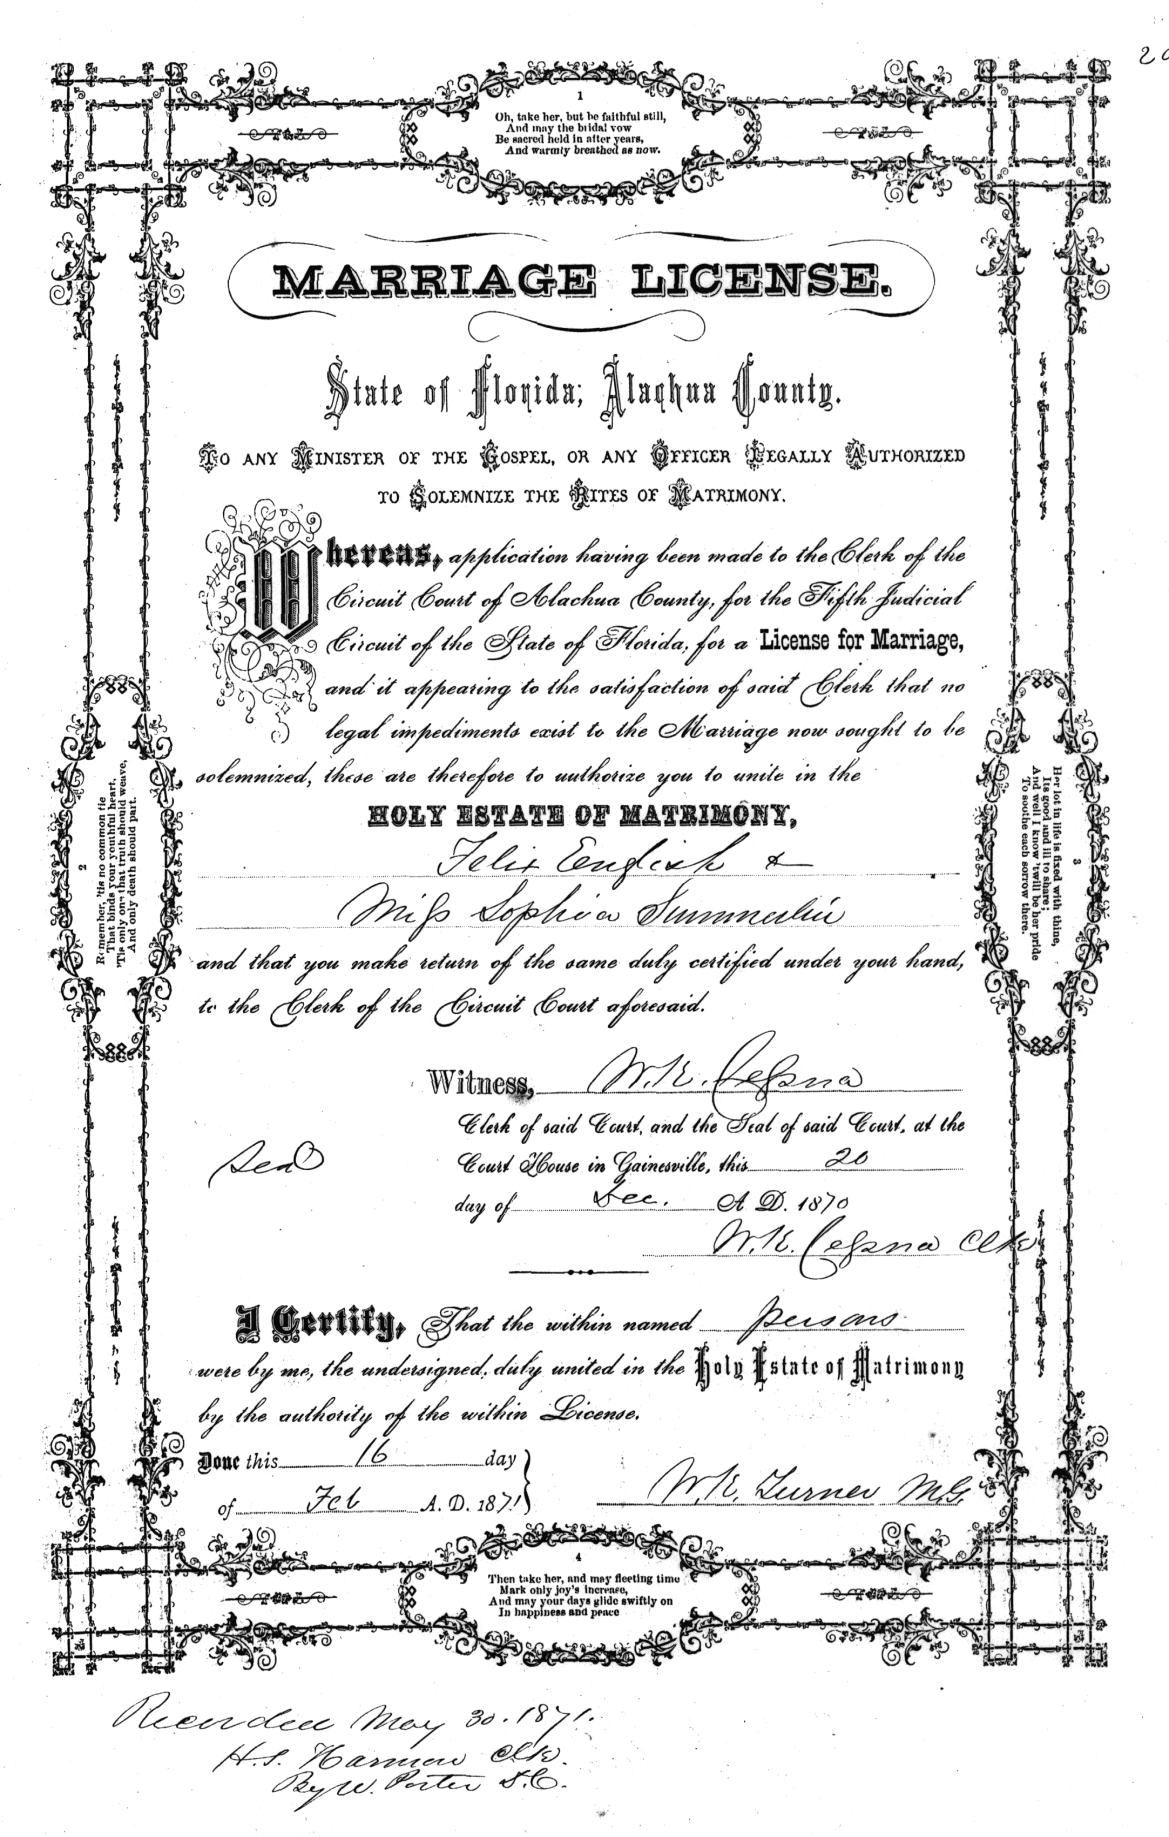 20
1
Oh, take her, but be faithful still,
And may the bridal vow
Be sacred held in after years,
And warmly breathed as now.
MARRIAGE LICENSE.
State of Florida; Alachua County.
TO ANY MINISTER OF THE GOSPEL, OR ANY OFFICER LEGALLY AUTHORIZED
TO SOLEMNIZE THE RITES OF MATRIMONY.
Whereas, application having been made to the Clerk of the
Circuit Court of Alachua County, for the Fifth Judicial
Circuit of the State of Florida, for a License for Marriage,
and it appearing to the satisfaction of said Clerk that no
legal impediments exist to the Marriage now sought to be
solemnized, these are therefore to authorize you to unite in the
HOLY ESTATE OF MATRIMONY,
Felix English &
Miss Sophia Summerlin
and that you make return of the same duly certified under your hand,
to the Clerk of the Circuit Court aforesaid.
Witness, W. K. Cessna
Clerk of said Court, and the Seal of said Court, at the
Seal
Court House in Gainesville, this 20
day of Dec. A D. 1870
W. K. Cessna Clk
I Certify, That the within named persons
were by me, the undersigned, duly united in the Holy Estate of Matrimony
by the authority of the within License.
Done this 16 day
of Feb A. D. 1871
W. K. Turner M.G.
2
Remember, 'tis no common tie
That binds your youthful heart,
'Tis only one that truth should weave,
And only death should part.
3
Her lot in life is fixed with thine,
Its good and ill to share;
And well I know 'twill be her pride
To soothe each sorrow there.
4
Then take her, and may fleeting time
Mark only joy's increase,
And may your days glide swiftly on
In happiness and peace
Recorded May 30. 1871.
H. S. Harmon Clk.
By W. Porter D.C.